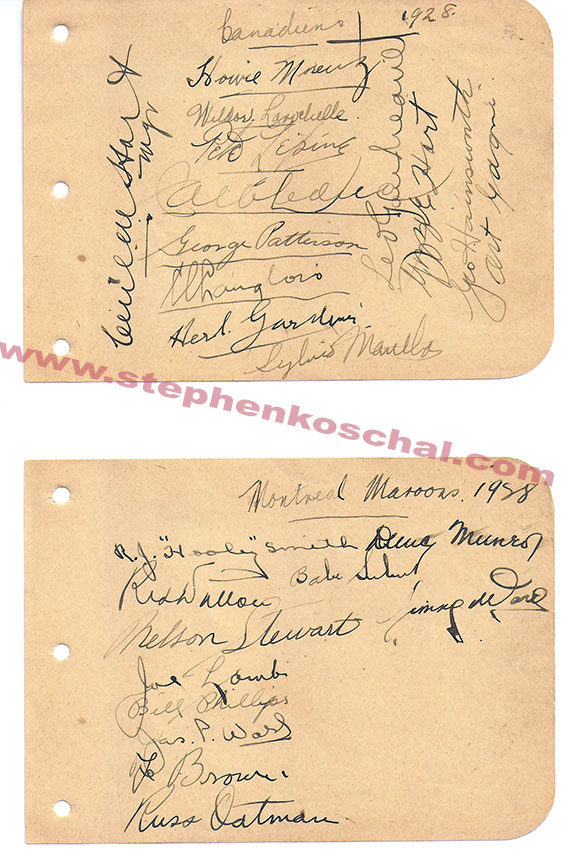 Canadiens 1928.
Howie Morenz
Wildor Larochelle
Pit Lepine
Albert Leduc
George Patterson
A Langlois
Herb. Gardiner
Sylvio Mantha
Cecil M. Hart
Mgr
Leo Gaudreault
Hart
Geo Hainsworth
Art Gagné
www.stephenkoschal.com
Montreal Maroons. 1928
R.J. "Hooley" Smith Dunc Munro
Red Dutton Babe Siebert
Nelson Stewart Jimmy Ward
Joe Lamb
Bill Phillips
Jas. P. Ward
F Brown.
Russ Oatman